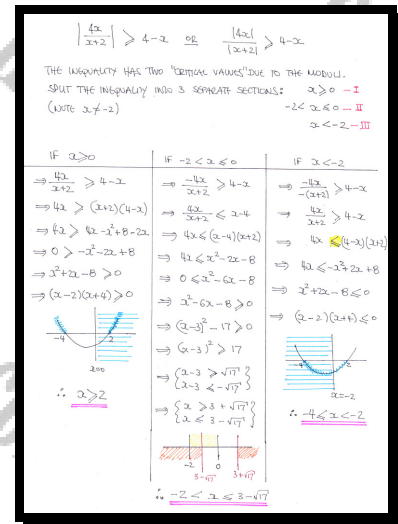 |4x/(x+2)| ⩾ 4-x OR |4x|/|x+2| ⩾ 4-x
THE INEQUALITY HAS TWO "CRITICAL VALUES" DUE TO THE MODULI.
SPLIT THE INEQUALITY INTO 3 SEPARATE SECTIONS: x⩾0 - I
(NOTE x≠-2) -2<x⩽0 - II
x<-2 - III
IF x⩾0
⇒ 4x/(x+2) ⩾ 4-x
⇒ 4x ⩾ (x+2)(4-x)
⇒ 4x ⩾ 4x-x²+8-2x
⇒ 0 ⩾ -x²-2x+8
⇒ x²+2x-8 ⩾ 0
⇒ (x-2)(x+4) ⩾ 0
-4 2
x=0
∴ x⩾2
IF -2<x⩽0
⇒ -4x/(x+2) ⩾ 4-x
⇒ 4x/(x+2) ⩽ x-4
⇒ 4x ⩽ (x-4)(x+2)
⇒ 4x ⩽ x²-2x-8
⇒ 0 ⩽ x²-6x-8
⇒ x²-6x-8 ⩾ 0
⇒ (x-3)²-17 ⩾ 0
⇒ (x-3)² ⩾ 17
⇒ {x-3 ⩾ √17
x-3 ⩽ -√17}
⇒ {x ⩾ 3+√17
x ⩽ 3-√17}
-2 0
3-√17 3+√17
∴ -2 < x ⩽ 3-√17
IF x<-2
⇒ -4x/-(x+2) ⩾ 4-x
⇒ 4x/(x+2) ⩾ 4-x
⇒ 4x ⩽ (4-x)(x+2)
⇒ 4x ⩽ -x²+2x+8
⇒ x²+2x-8 ⩽ 0
⇒ (x-2)(x+4) ⩽ 0
-4 2
x=-2
∴ -4⩽x<-2